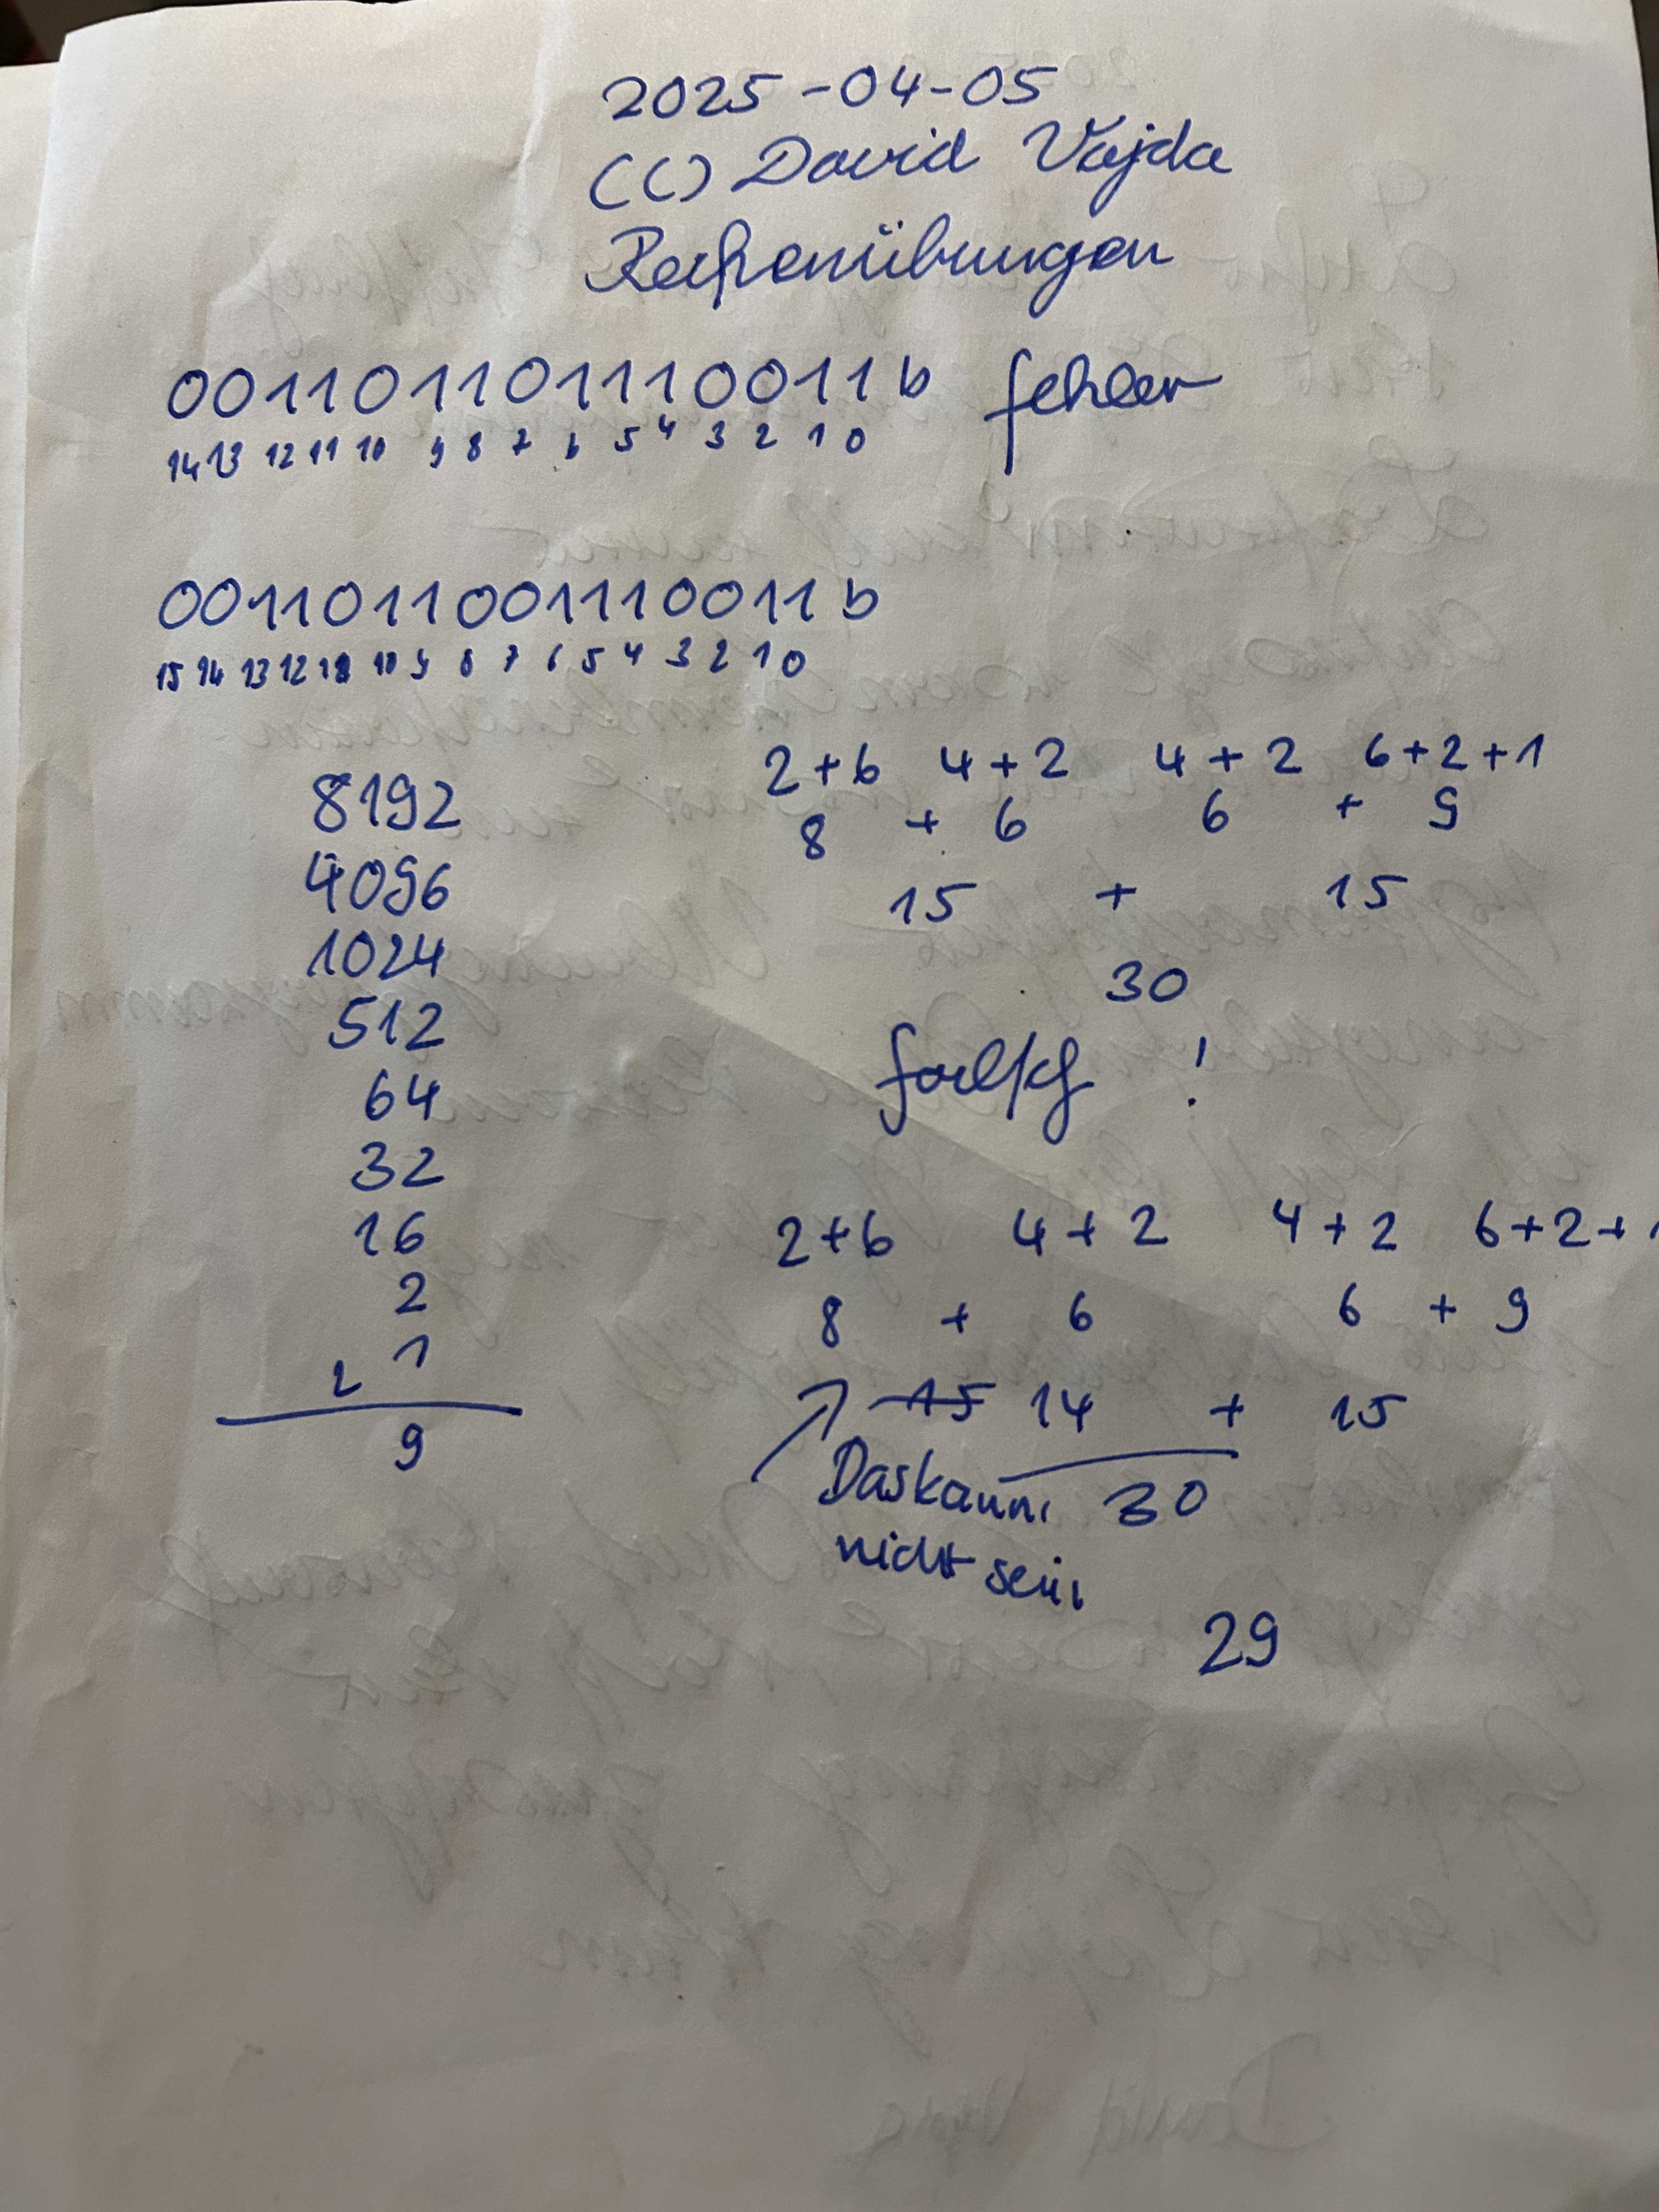 2025-04-05
(C) David Vajda
Rechenübungen
001101101110011b fehler
14 13 12 11 10 9 8 7 6 5 4 3 2 1 0
0011011001110011b
15 14 13 12 10 9 8 7 6 5 4 3 2 1 0
8192
4096
1024
512
64
32
16
2
1
2
9
2+6 4+2 4+2 6+2+1
8 + 6 6 + 9
15 + 15
30
falsch !
2+6 4+2 4+2 6+2+1
8 + 6 6 + 9
15 14 + 15
Das kann 30
nicht sein
29